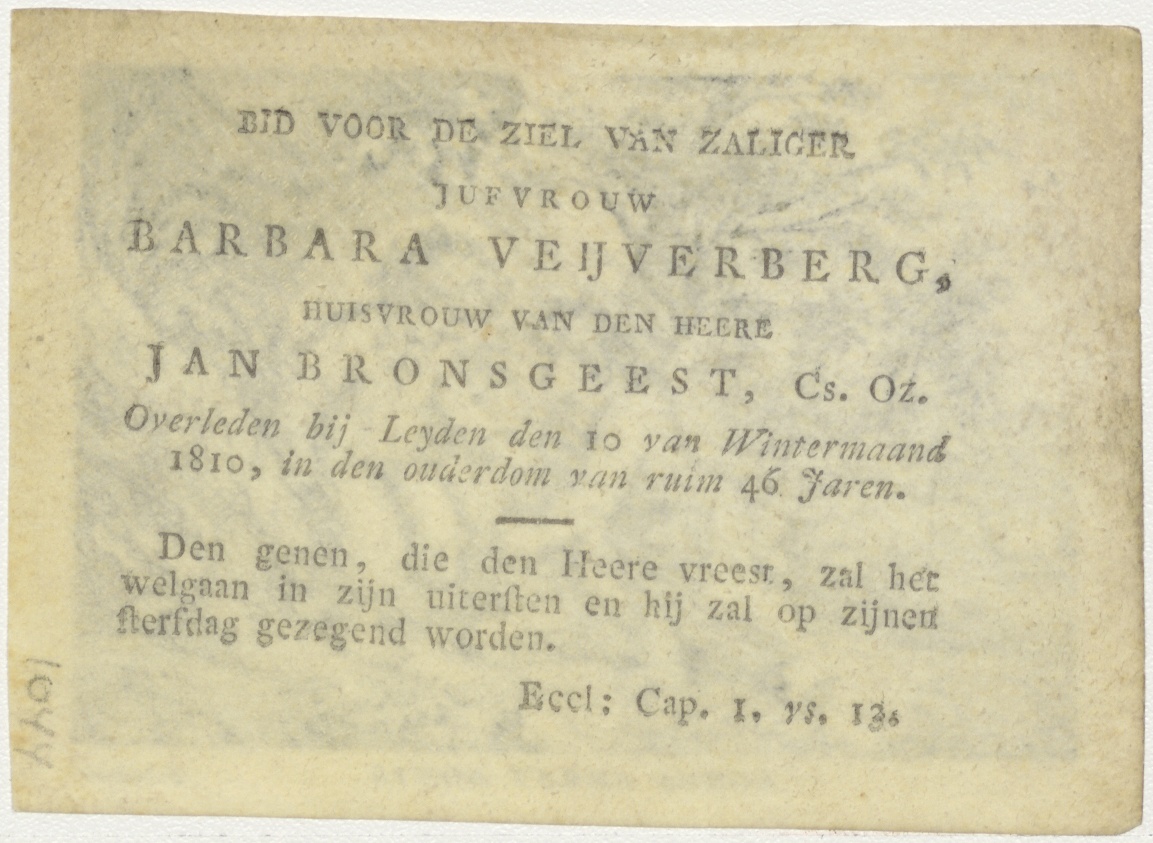 BID VOOR DE ZIEL VAN ZALIGER
JUFVROUW
BARBARA VEIJVERBERG,
HUISVROUW VAN DEN HEERE
JAN BRONSGEEST, Cs. Oz.
Overleden bij Leyden den 10 van Wintermaand
1810, in den ouderdom van ruim 46 Jaren.
Den genen, die den Heere vreest, zal het
welgaan in zijn uiterſten en hij zal op zijnen
ſterfdag gezegend worden.
Eccl: Cap. 1. vs. 13.
1044